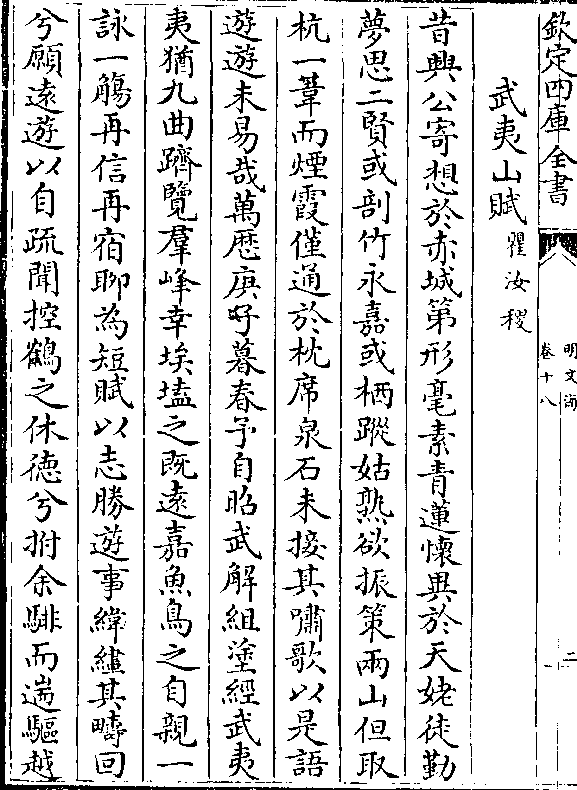 欽定四庫全書
明文海
卷十八
二
武夷山賦 瞿汝稷
昔興公寄想於赤城第形毫素青蓮懷興於天姥徒勤
夢思二賢或剖竹永嘉或栖蹤姑熟欲振策兩山但取
杭一葦而煙霞僅通於枕席泉石未接其嘯歌以是語
遊遊未易哉萬歴庚子暮春予自昭武解組塗經武夷
夷猶九曲躋覽羣峰幸埃壒之既遠嘉魚鳥之自親一
詠一觴再信再宿聊為短賦以志勝遊事緯繣其疇回
兮願逺遊以自疏聞控鶴之休徳兮拊余騑而遄驅越